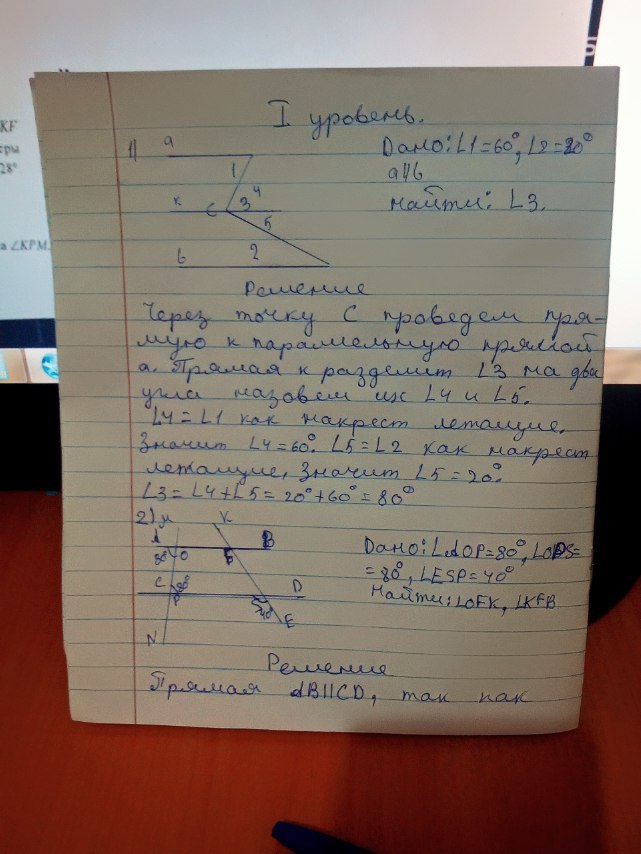 KF
еры
28°
а ∠KPM.
I уровень.
1) a
Дано: ∠1=60°, ∠2=20°
a||b
Найти: ∠3.
1
4
к C 3
5
b 2
Решение
Через точку C проведем пря-
мую к параллельную прямой
a. Прямая к разделит ∠3 на два
угла назовем их ∠4 и ∠5.
∠4=∠1 как накрест лежащие.
Значит ∠4=60°. ∠5=∠2 как накрест
лежащие, значит ∠5=20°.
∠3=∠4+∠5=20°+60°=80°
2) M K
A B
80° O
C 80° D
P 40°
E
N
Дано: ∠AOP=80°,
=80°, ∠ESP=40°
Найти: ∠OFK, ∠KFB
Решение
Прямая AB||CD, так как